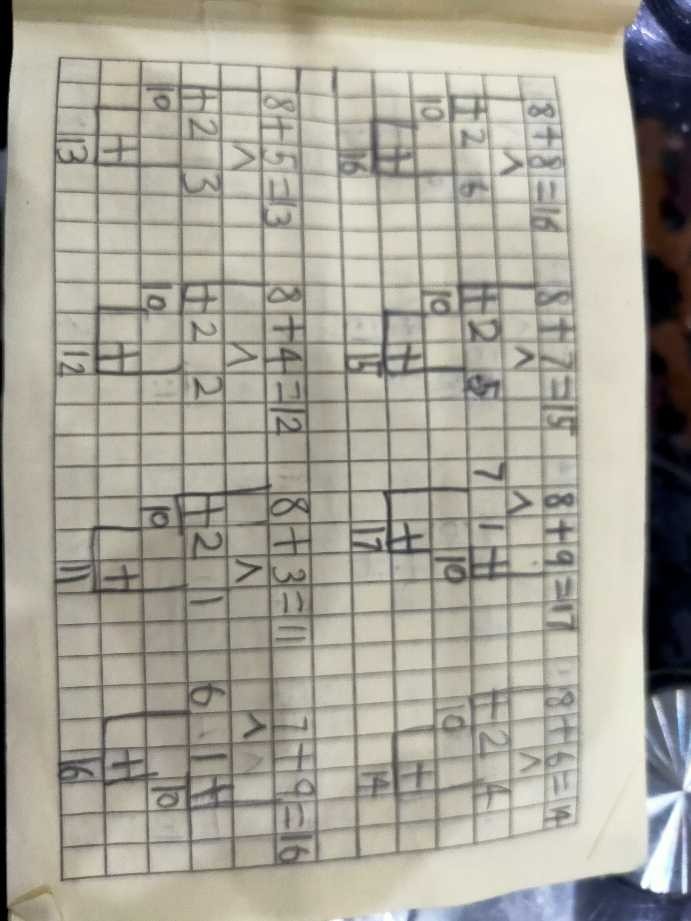 8+8=16 8+7=15 8+9=17 8+6=14
∧ ∧ ∧ ∧
+ 2 6 + 2 5 7 1 + + 2 4
10 10 10 10
+ + + +
16 15 17 14
8+5=13 8+4=12 8+3=11 7+9=16
∧ ∧ ∧ ∧
+ 2 3 + 2 2 + 2 1 6 1 +
10 10 10 10
+ + + +
13 12 11 16